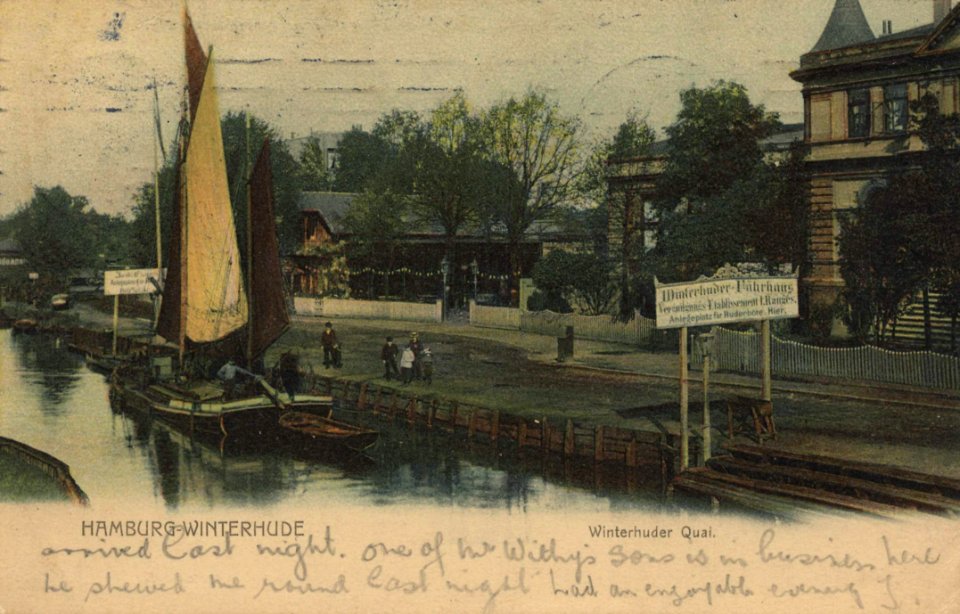 Winterhuder-Fährhaus
Vergnügungs-Etablissement I. Ranges.
Anlegeplatz für Ruderböte. Hier.
HAMBURG-WINTERHUDE
Winterhuder Quai.
arrived last night. one of Mr Withy's sons is in business here
he shewed me round last night had an enjoyable evening J.